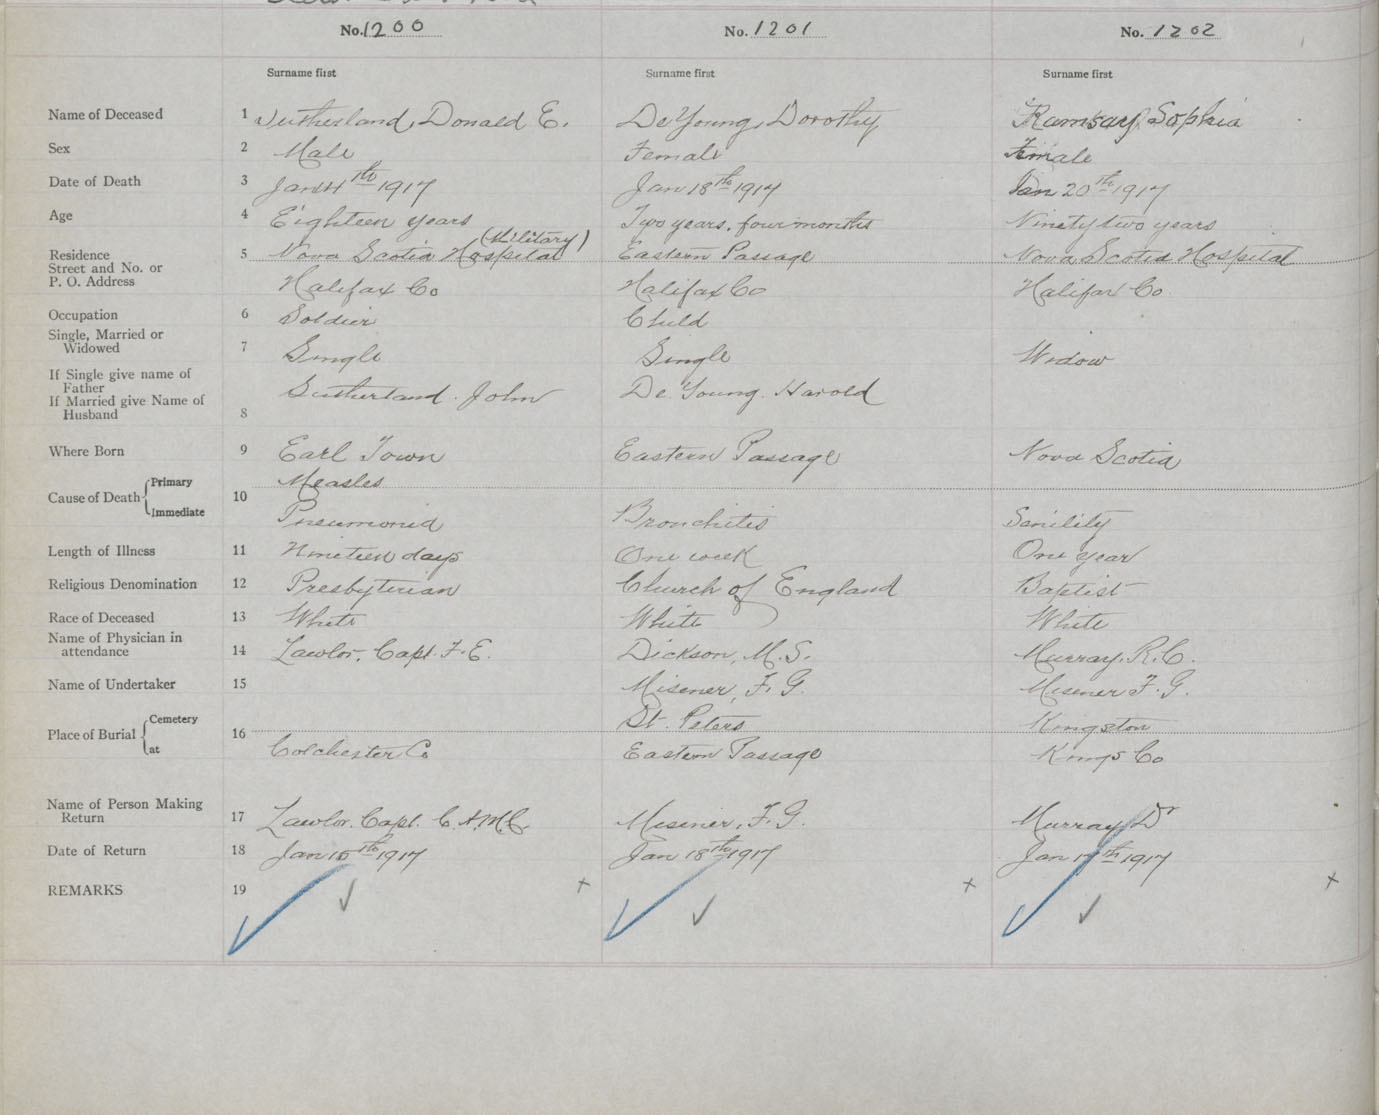 No. 1200 No. 1201 No. 1202
Surname first Surname first Surname first
Name of Deceased 1 Sutherland, Donald E. De Young, Dorothy Ramsay, Sophia
Sex 2 Male Female Female
Date of Death 3 Jan 14th 1917 Jan 18th 1917 Jan 20th 1917
Age 4 Eighteen years Two years, four months Ninety two years
(Military)
Residence 5 Nova Scotia Hospital Eastern Passage Nova Scotia Hospital
Street and No. or
P. O. Address Halifax Co Halifax Co Halifax Co
Occupation 6 Soldier Child
Single, Married or
Widowed 7 Single Single Widow
If Single give name of
Father Sutherland. John De Young. Harold
If Married give Name of
Husband 8
Where Born 9 Earl Town Eastern Passage Nova Scotia
Primary Measles
Cause of Death 10
Immediate Pneumonia Bronchitis Senility
Length of Illness 11 Nineteen days One week One year
Religious Denomination 12 Presbyterian Church of England Baptist
Race of Deceased 13 White White White
Name of Physician in
attendance 14 Lawlor, Capt. F. E. Dickson, M. S. Murray, R. C.
Name of Undertaker 15 Misener, F. G. Misener F. G.
Cemetery St. Peters Kingston
Place of Burial 16
at Colchester Co Eastern Passage Kings Co
Name of Person Making
Return 17 Lawlor. Capt. C. A. M. C. Misener, F. G. Murray, Dr
Date of Return 18 Jan 18th 1917 Jan 1917
REMARKS 19